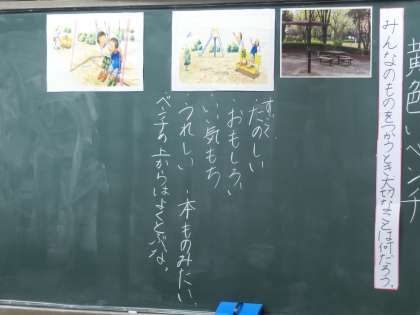 黄色いベンチ
みんなのものをつかうとき、大切なことは何だろう。
すごく
・たのしい
・おもしろい
・いい気もち
・うれしい ・本ものみたい。
・ベンチの上からはよくとぶな。